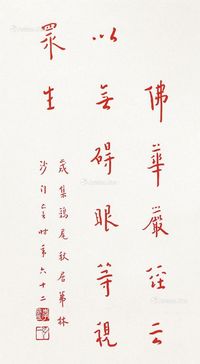 佛華嚴經云
以無碍眼等視
眾生
歲集鶉尾秋居茀林
沙門亡言時年六十二